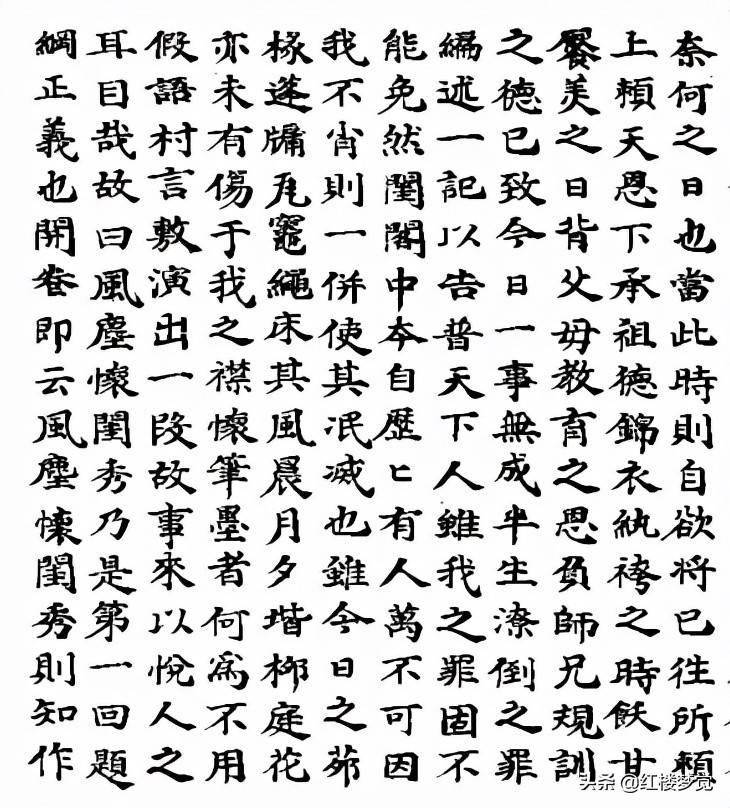 奈何之日也當此時則自欲將已往所賴
上賴天恩下承祖德錦衣紈袴之時飫甘
饜美之日背父母教育之恩負師兄規訓
之德已致今日一事無成半生潦倒之罪
編述一記以告普天下人雖我之罪固不
能免然閨閣中本自歷匕有人萬不可因
我不肖則一併使其泯滅也雖今日之茆
椽蓬牖瓦竈繩床其風晨月夕堦柳庭花
亦未有傷于我之襟懷筆墨者何為不用
假語村言敷演出一段故事來以悅人之
耳目哉故曰風塵懷閨秀乃是第一回題
綱正義也開卷即云風塵懷閨秀則知作
头条 @红楼梦觉